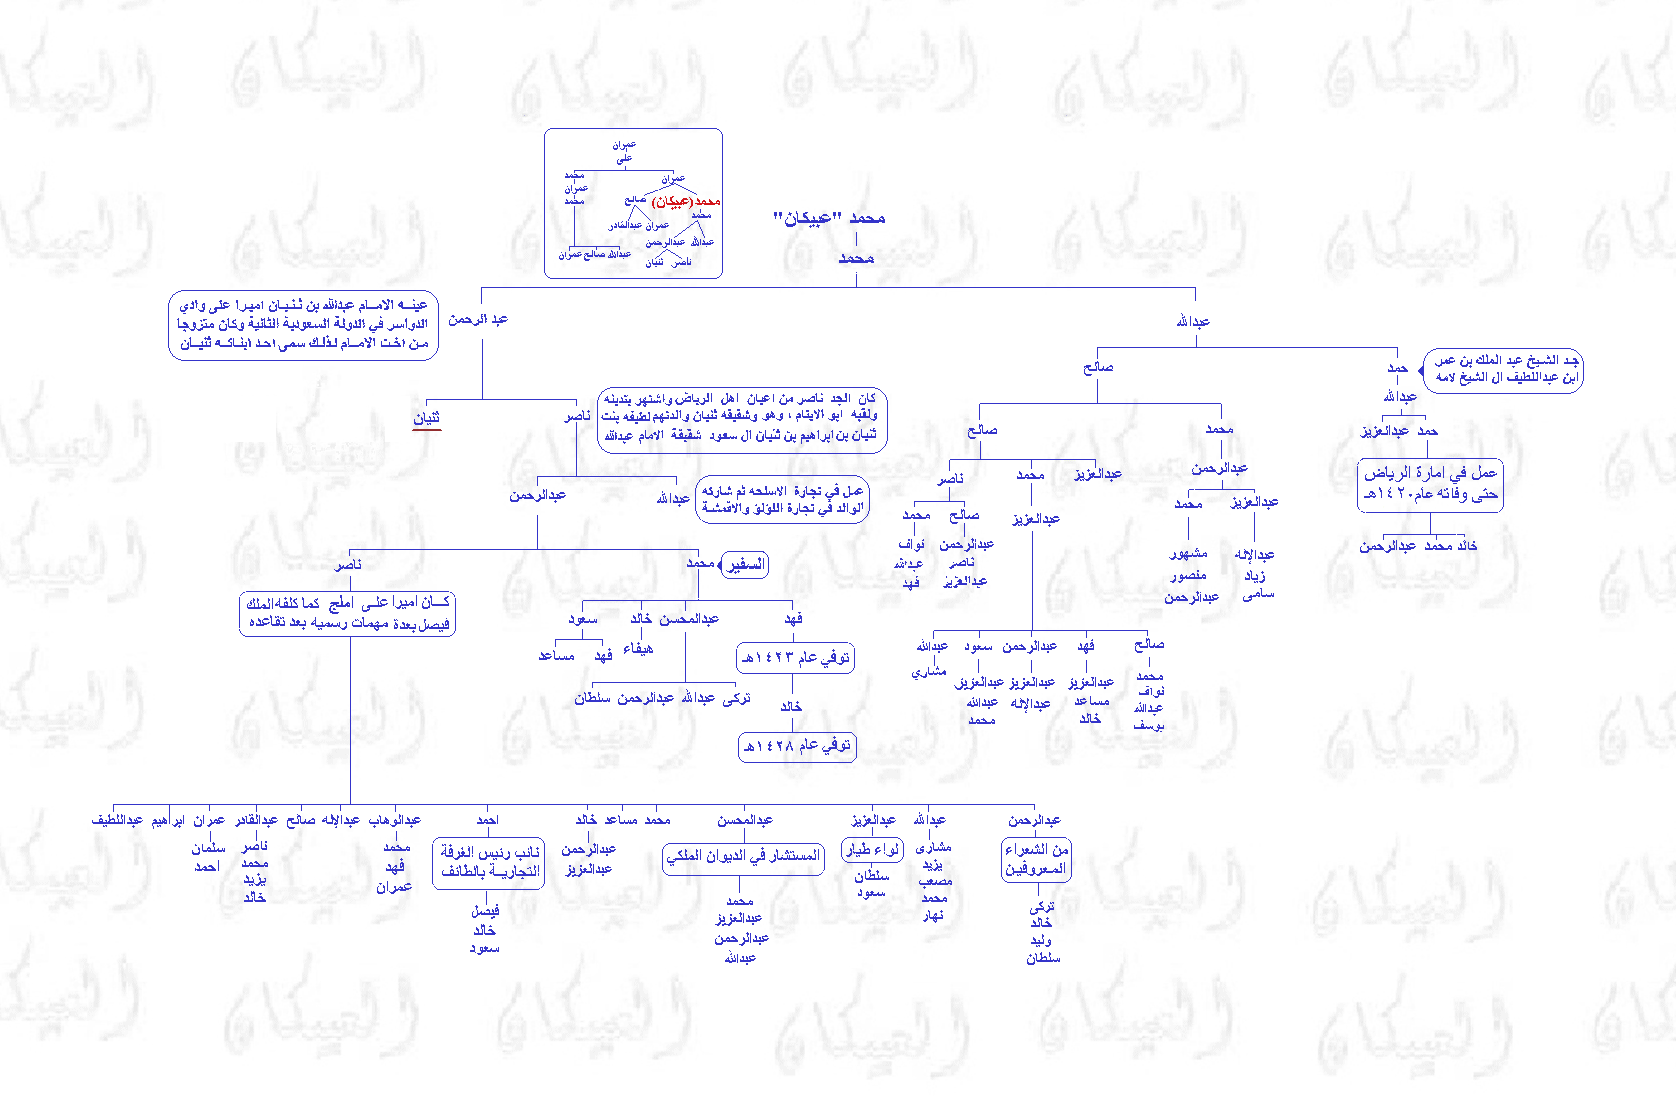 عمران
على
محمد
عمران
عمران
محمد
محمد (عبيكان)
صالح
محمد
عمران عبدالقادر
عبدالله
عبدالرحمن
عبدالله صالح عمران
ناصر ثنيان
محمد "عبيكان"
محمد
عبد الرحمن
عبدالله
عينه الامام عبدالله بن ثنيان اميرا على وادي
الدواسر في الدولة السعودية الثانية وكان متزوجا
من اخت الامام لذلك سمى احد ابنائه ثنيان
صالح
حمد
جد الشيخ عبد الملك بن عمر
ابن عبداللطيف ال الشيخ لامه
عبدالله
حمد عبدالعزيز
عمل في امارة الرياض
حتى وفاته عام ١٤٢٠هـ
خالد محمد عبدالرحمن
محمد
صالح
عبدالرحمن
عبدالعزيز
محمد
عبدالإله
زياد
سامى
مشهور
منصور
عبدالرحمن
عبدالعزيز
محمد
ناصر
عبدالعزيز
صالح
محمد
عبدالرحمن
ناصر
عبدالعزيز
نواف
عبدالله
فهد
صالح
فهد
عبدالرحمن
سعود
عبدالله
محمد
نواف
عبدالله
يوسف
عبدالعزيز
مساعد
خالد
عبدالعزيز
عبدالإله
عبدالعزيز
عبدالله
محمد
مشاري
ناصر
ثنيان
كان الجد ناصر من اعيان اهل الرياض واشتهر بتدينه
ولقبه ابو الايتام ، وهو وشقيقه ثنيان والدتهم لطيفه بنت
ثنيان بن ابراهيم بن ثنيان ال سعود شقيقة الامام عبدالله
عبدالله
عبدالرحمن
عمل في تجارة الاسلحه ثم شاركه
الوالد في تجارة اللؤلؤ والاقمشة
محمد
السفير
ناصر
كان اميرا على املج كما كلفه الملك
فيصل بعدة مهمات رسميه بعد تقاعده
فهد
عبدالمحسن
خالد
سعود
توفي عام ١٤٢٣هـ
خالد
توفي عام ١٤٢٨هـ
هيفاء
فهد
مساعد
تركى عبدالله عبدالرحمن سلطان
عبدالرحمن
عبدالله
عبدالعزيز
عبدالمحسن
محمد
مساعد
خالد
احمد
عبدالوهاب
عبدالإله
صالح
عبدالقادر
عمران
ابراهيم
عبداللطيف
من الشعراء
المعروفين
تركى
خالد
وليد
سلطان
مشارى
يزيد
مصعب
محمد
نهار
لواء طيار
سلطان
سعود
المستشار في الديوان الملكي
محمد
عبدالعزيز
عبدالرحمن
عبدالله
عبدالرحمن
عبدالعزيز
نائب رئيس الغرفة
التجارية بالطائف
فيصل
خالد
سعود
محمد
فهد
عمران
ناصر
محمد
يزيد
خالد
سلمان
احمد
العبيكان